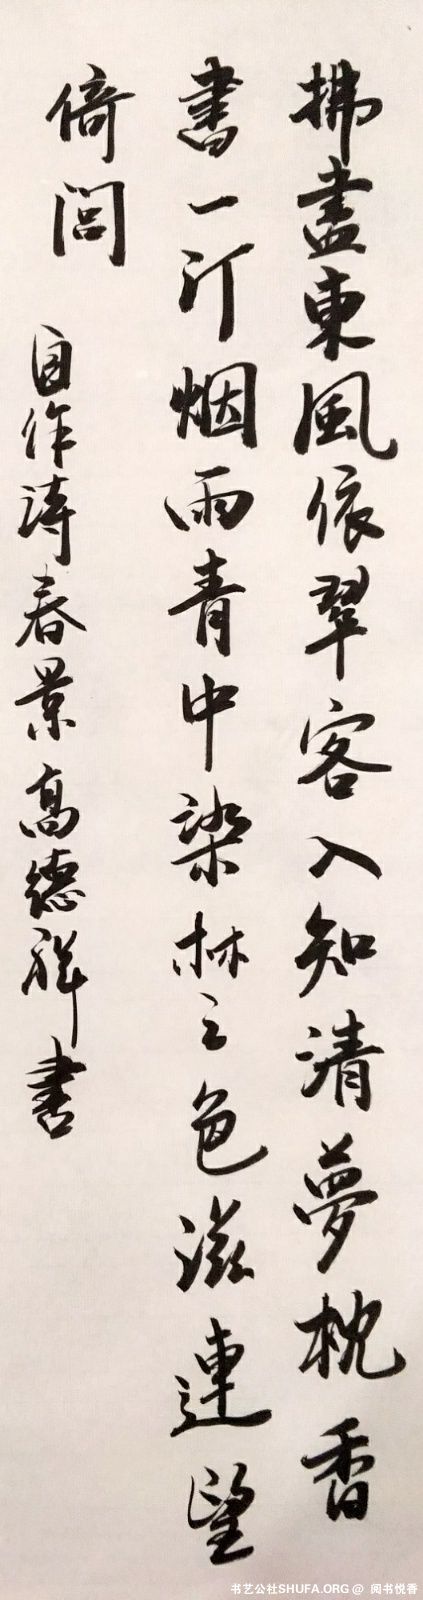 拂盡東風依翠客入知清夢枕香
書一汀烟雨青中染林之色滋連望
倚閭
自作詩春景高德祥書
书艺公社SHUFA.ORG @ 阅书悦香